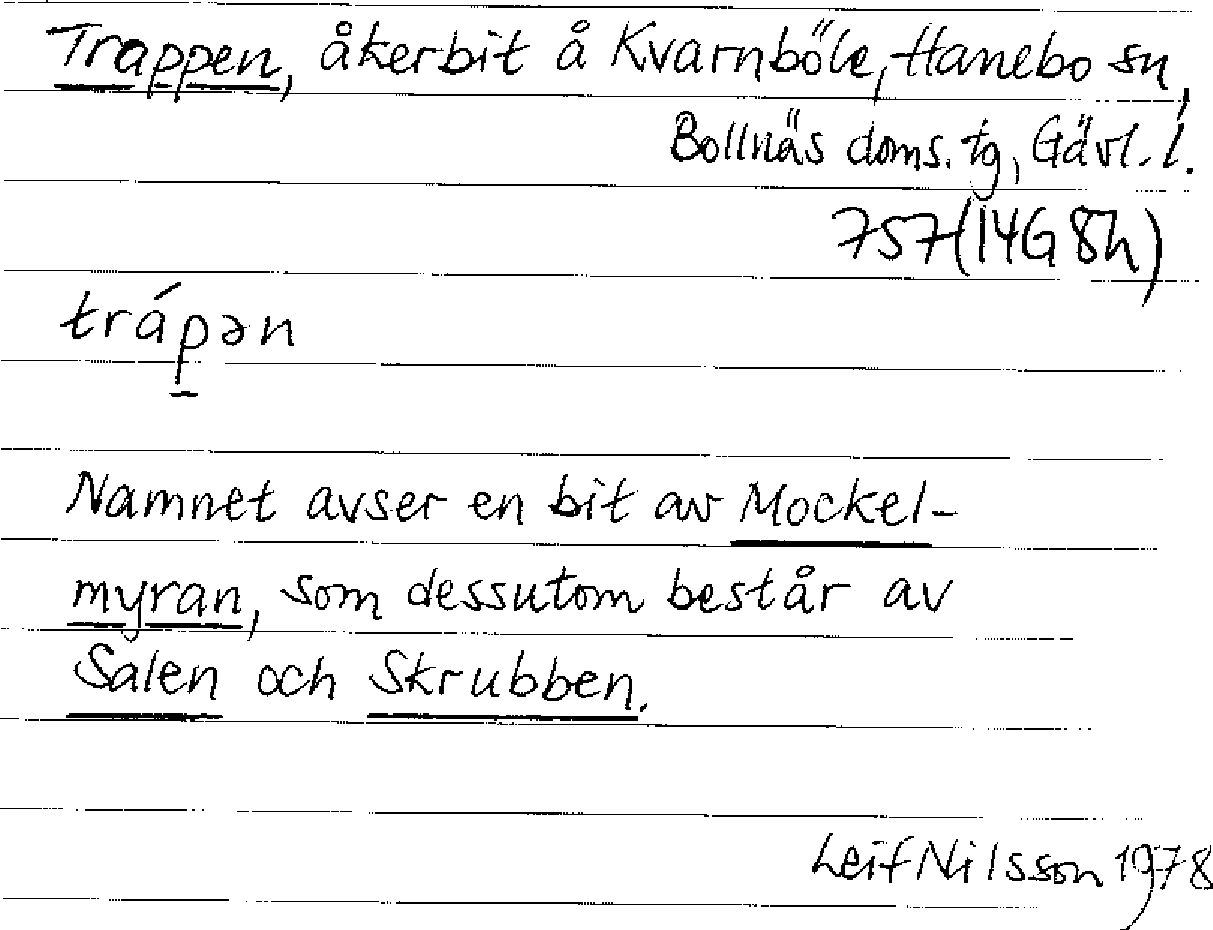 Trappen, åkerbit å Kvarnböle, Hanebo sn,
Bollnäs doms. tg, Gävl. l.
757 (14G 8h)
tráp̠ən
Namnet avser en bit av Mockel-
myran, som dessutom består av
Salen och Skrubben.
Leif Nilsson 1978